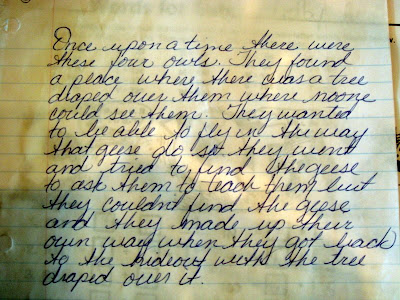 Once upon a time there were
these four owls. They found
a place where there was a tree
draped over them where noone
could see them. They wanted
to be able to fly in the way
that geese do so they went
and tried to find the geese
to ask them to teach them but
they couldnt find the geese
and they made up their
own way when they got back
to the hideout with the tree
draped over it.